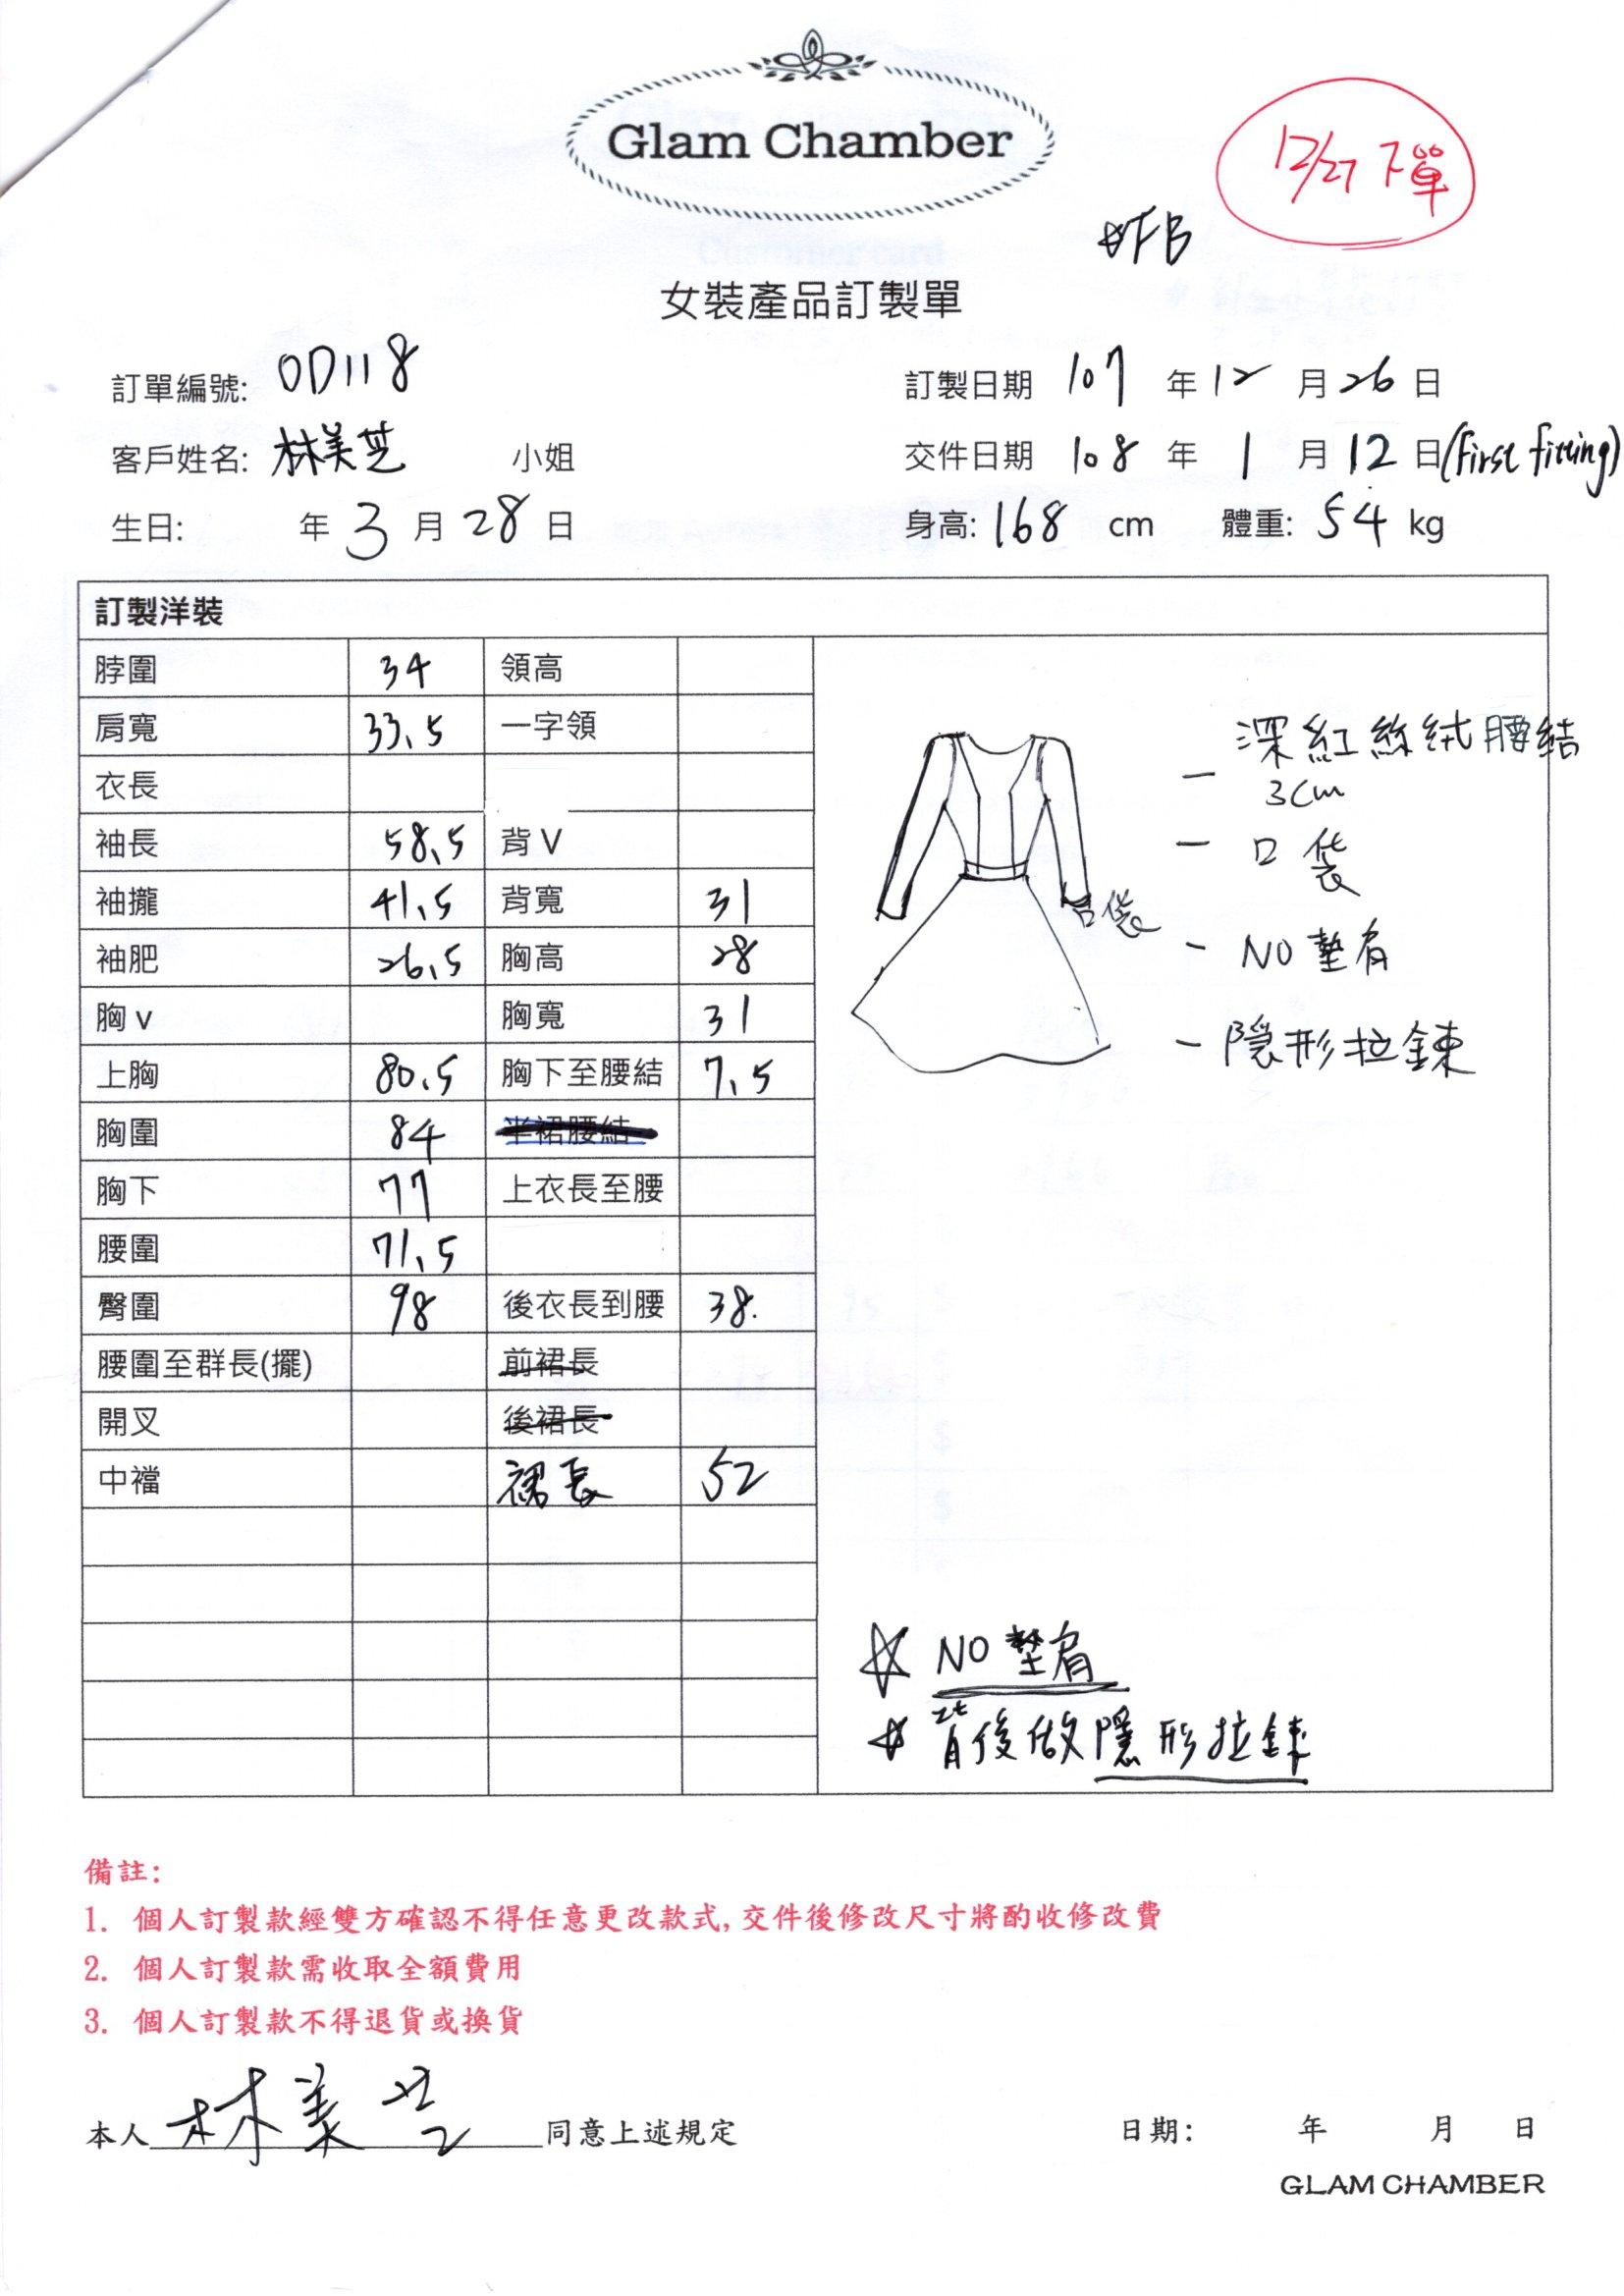 Glam Chamber
12/27 下單
☆FB
女裝產品訂製單
訂單編號: OD118 訂製日期 107 年 12 月 26 日
客戶姓名: 林美芝 小姐 交件日期 108 年 1 月 12 日(first fitting)
生日: 年 3 月 28 日 身高: 168 cm 體重: 54 kg
訂製洋裝
脖圍 34 領高
肩寬 33.5 一字領
衣長
袖長 58.5 背 V
袖攏 41.5 背寬 31
袖肥 26.5 胸高 28
胸 v 胸寬 31
上胸 80.5 胸下至腰結 7.5
胸圍 84 半裙腰結
胸下 77 上衣長至腰
腰圍 71.5
臀圍 98 後衣長到腰 38.
腰圍至群長(擺) 前裙長
開叉 後裙長
中襠 裙長 52
- 深紅絲絨腰結
3cm
- 口袋
口袋
- NO 墊肩
- 隱形拉鍊
☆ NO 墊肩
☆ 背後做隱形拉鍊
備註:
1. 個人訂製款經雙方確認不得任意更改款式,交件後修改尺寸將酌收修改費
2. 個人訂製款需收取全額費用
3. 個人訂製款不得退貨或換貨
本人 林美芝 同意上述規定 日期: 年 月 日
GLAM CHAMBER